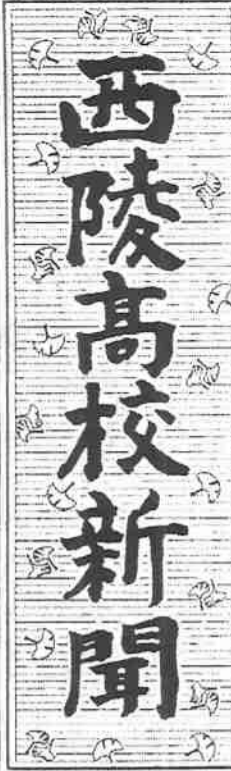 西陵高校新聞